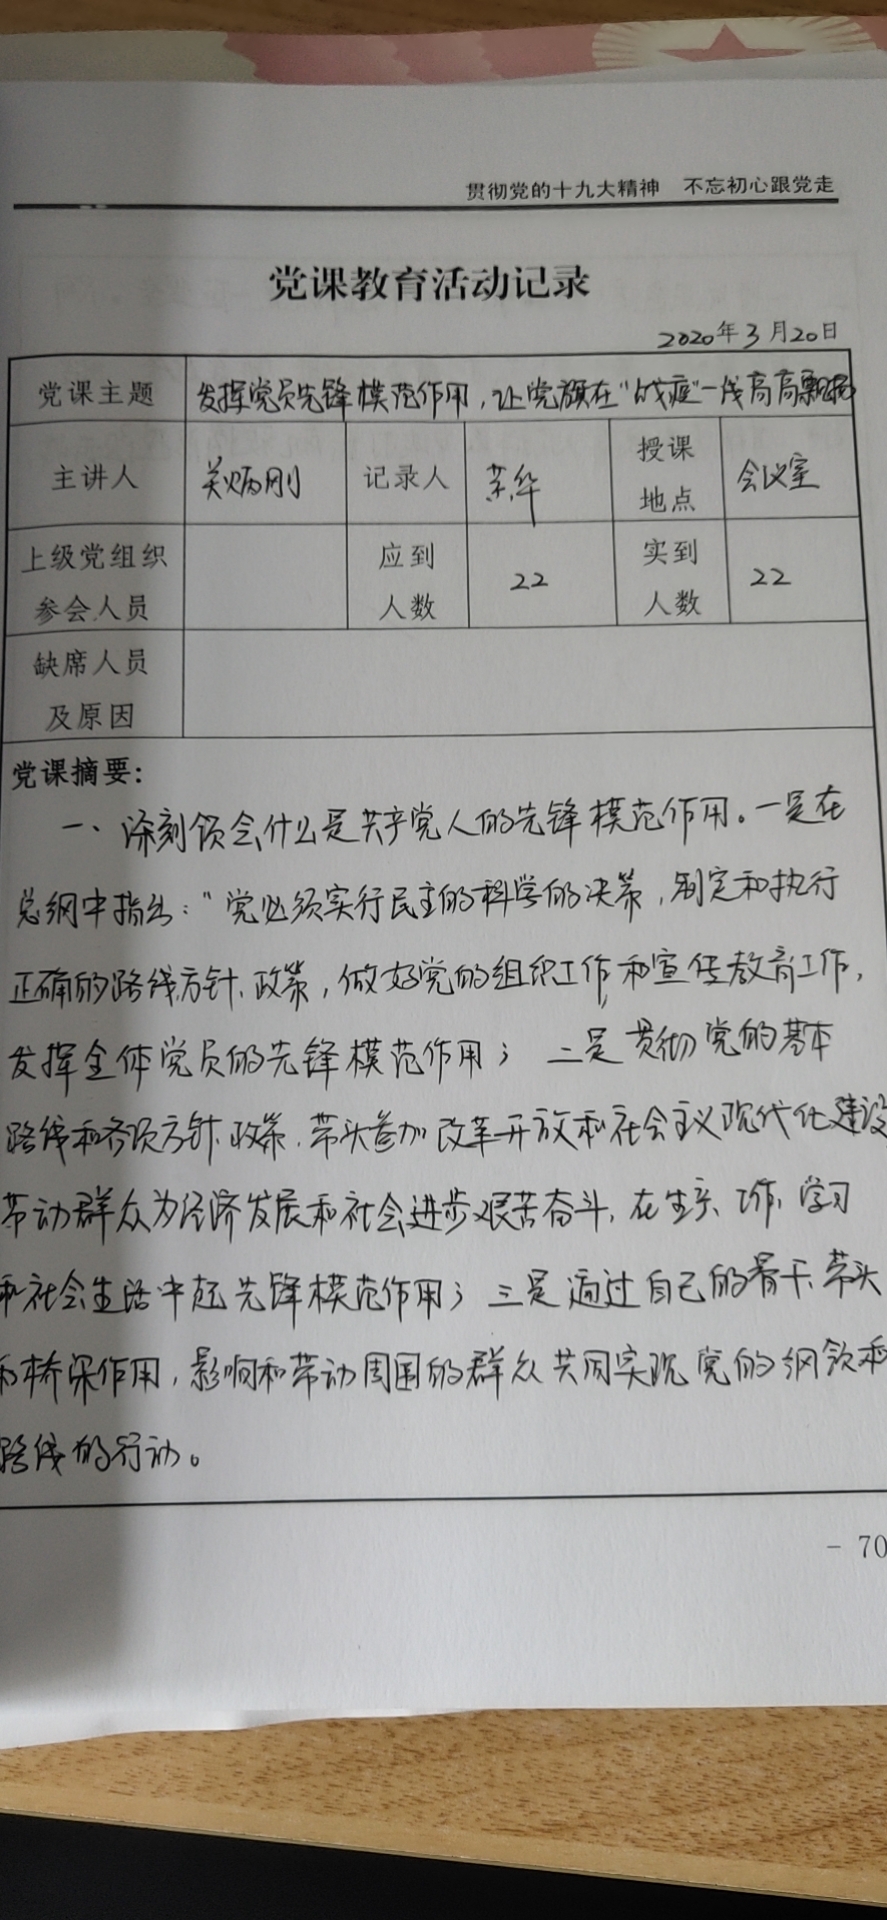 贯彻党的十九大精神 不忘初心跟党走
党课教育活动记录
2020年3月20日
党课主题 发挥党员先锋模范作用，让党旗在“战疫”一线高高飘扬
主讲人 炳刚 记录人 华 授课地点 会议室
上级党组织参会人员 应到人数 22 实到人数 22
缺席人员及原因
党课摘要：
一、深刻领会什么是共产党人的先锋模范作用。一是在
总纲中指出：“党必须实行民主的科学的决策，制定和执行
正确的路线、方针、政策，做好党的组织工作和宣传教育工作，
发挥全体党员的先锋模范作用；二是贯彻党的基本
路线和各项方针、政策，带头参加改革开放和社会主义现代化建设
带动群众为经济发展和社会进步艰苦奋斗，在生产、工作、学习
和社会生活中起先锋模范作用；三是通过自己的骨干、带头
和桥梁作用，影响和带动周围的群众共同实现党的纲领和
路线的行动。
- 70